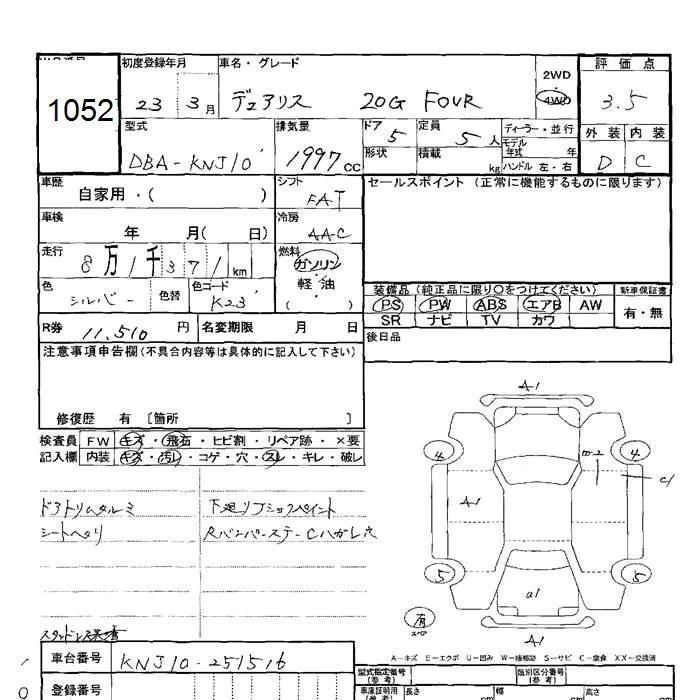 初度登録年月 車名・グレード 2WD 評価点
1052 23 3月 デュアリス 20G FOUR 4WD 3.5
型式 排気量 ドア 5 定員 5人 ディーラー・並行 外装 内装
DBA-KNJ10 1997cc 形状 積載 kg モデル年式 年 ハンドル 左・右 D C
車歴 自家用・( ) シフト FAT セールスポイント (正常に機能するものに限ります)
車検 年 月( 日) 冷房 AAC
走行 8万1千371km 燃料 ガソリン・軽・油 ( )
色 シルバー 色替 色コード K23
装備品 (純正品に限り○をつけてください) 新車保証書
PS PW ABS エアB AW 有・無
SR ナビ TV カワ
R券 11,510円 名変期限 月 日 後日品
注意事項申告欄(不具合内容等は具体的に記入して下さい)
修復歴 有 [箇所 ]
検査員 FW キズ・飛石・ヒビ割・リペア跡・×要
記入欄 内装 キズ・汚レ・コゲ・穴・スレ・キレ・破レ
ドアトリムタルミ 下廻リ
シートヘタリ Rバンパーステー C ハガレ 穴
A1
4 4
A1
5 5
a1
A1
有
スペア
A-キズ E-エクボ U-凹み W-補修跡 S-サビ C-腐食 XX-交換済
車台番号 KNJ10-251516 型式指定番号 (参考) 類別区分番号 (参考)
登録番号 車庫証明用 (参考) 長さ cm 幅 cm 高さ cm